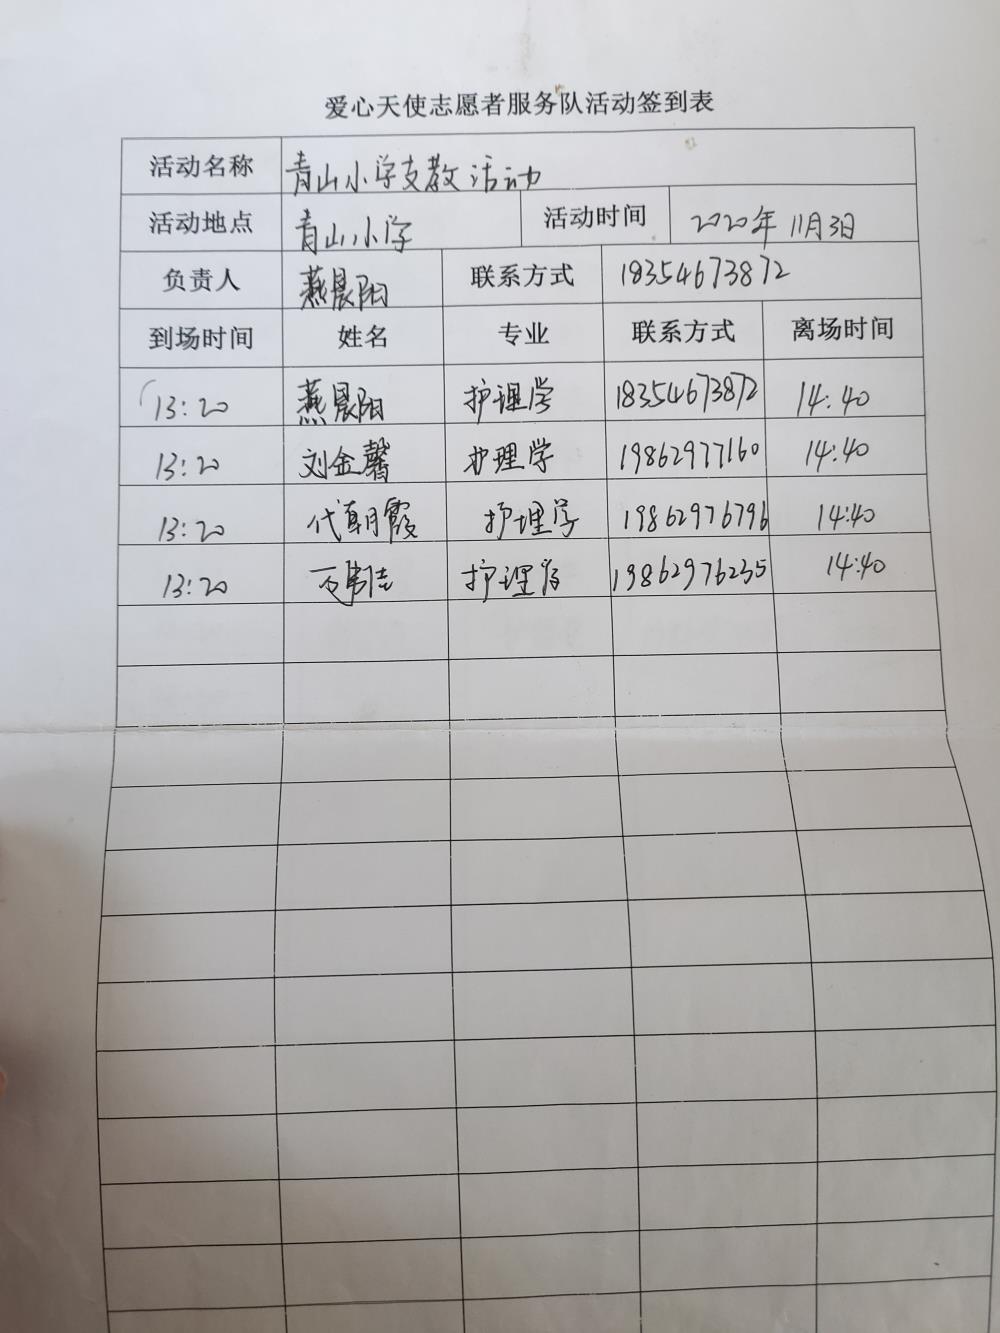 爱心天使志愿者服务队活动签到表
活动名称 青山小学支教活动
活动地点 青山小学 活动时间 2020年11月3日
负责人 燕晨阳 联系方式 18354673872
到场时间 姓名 专业 联系方式 离场时间
13:20 燕晨阳 护理学 18354673872 14:40
13:20 刘金馨 护理学 19862977160 14:40
13:20 代朝霞 护理学 19862976796 14:40
13:20 护理学 19862976235 14:40